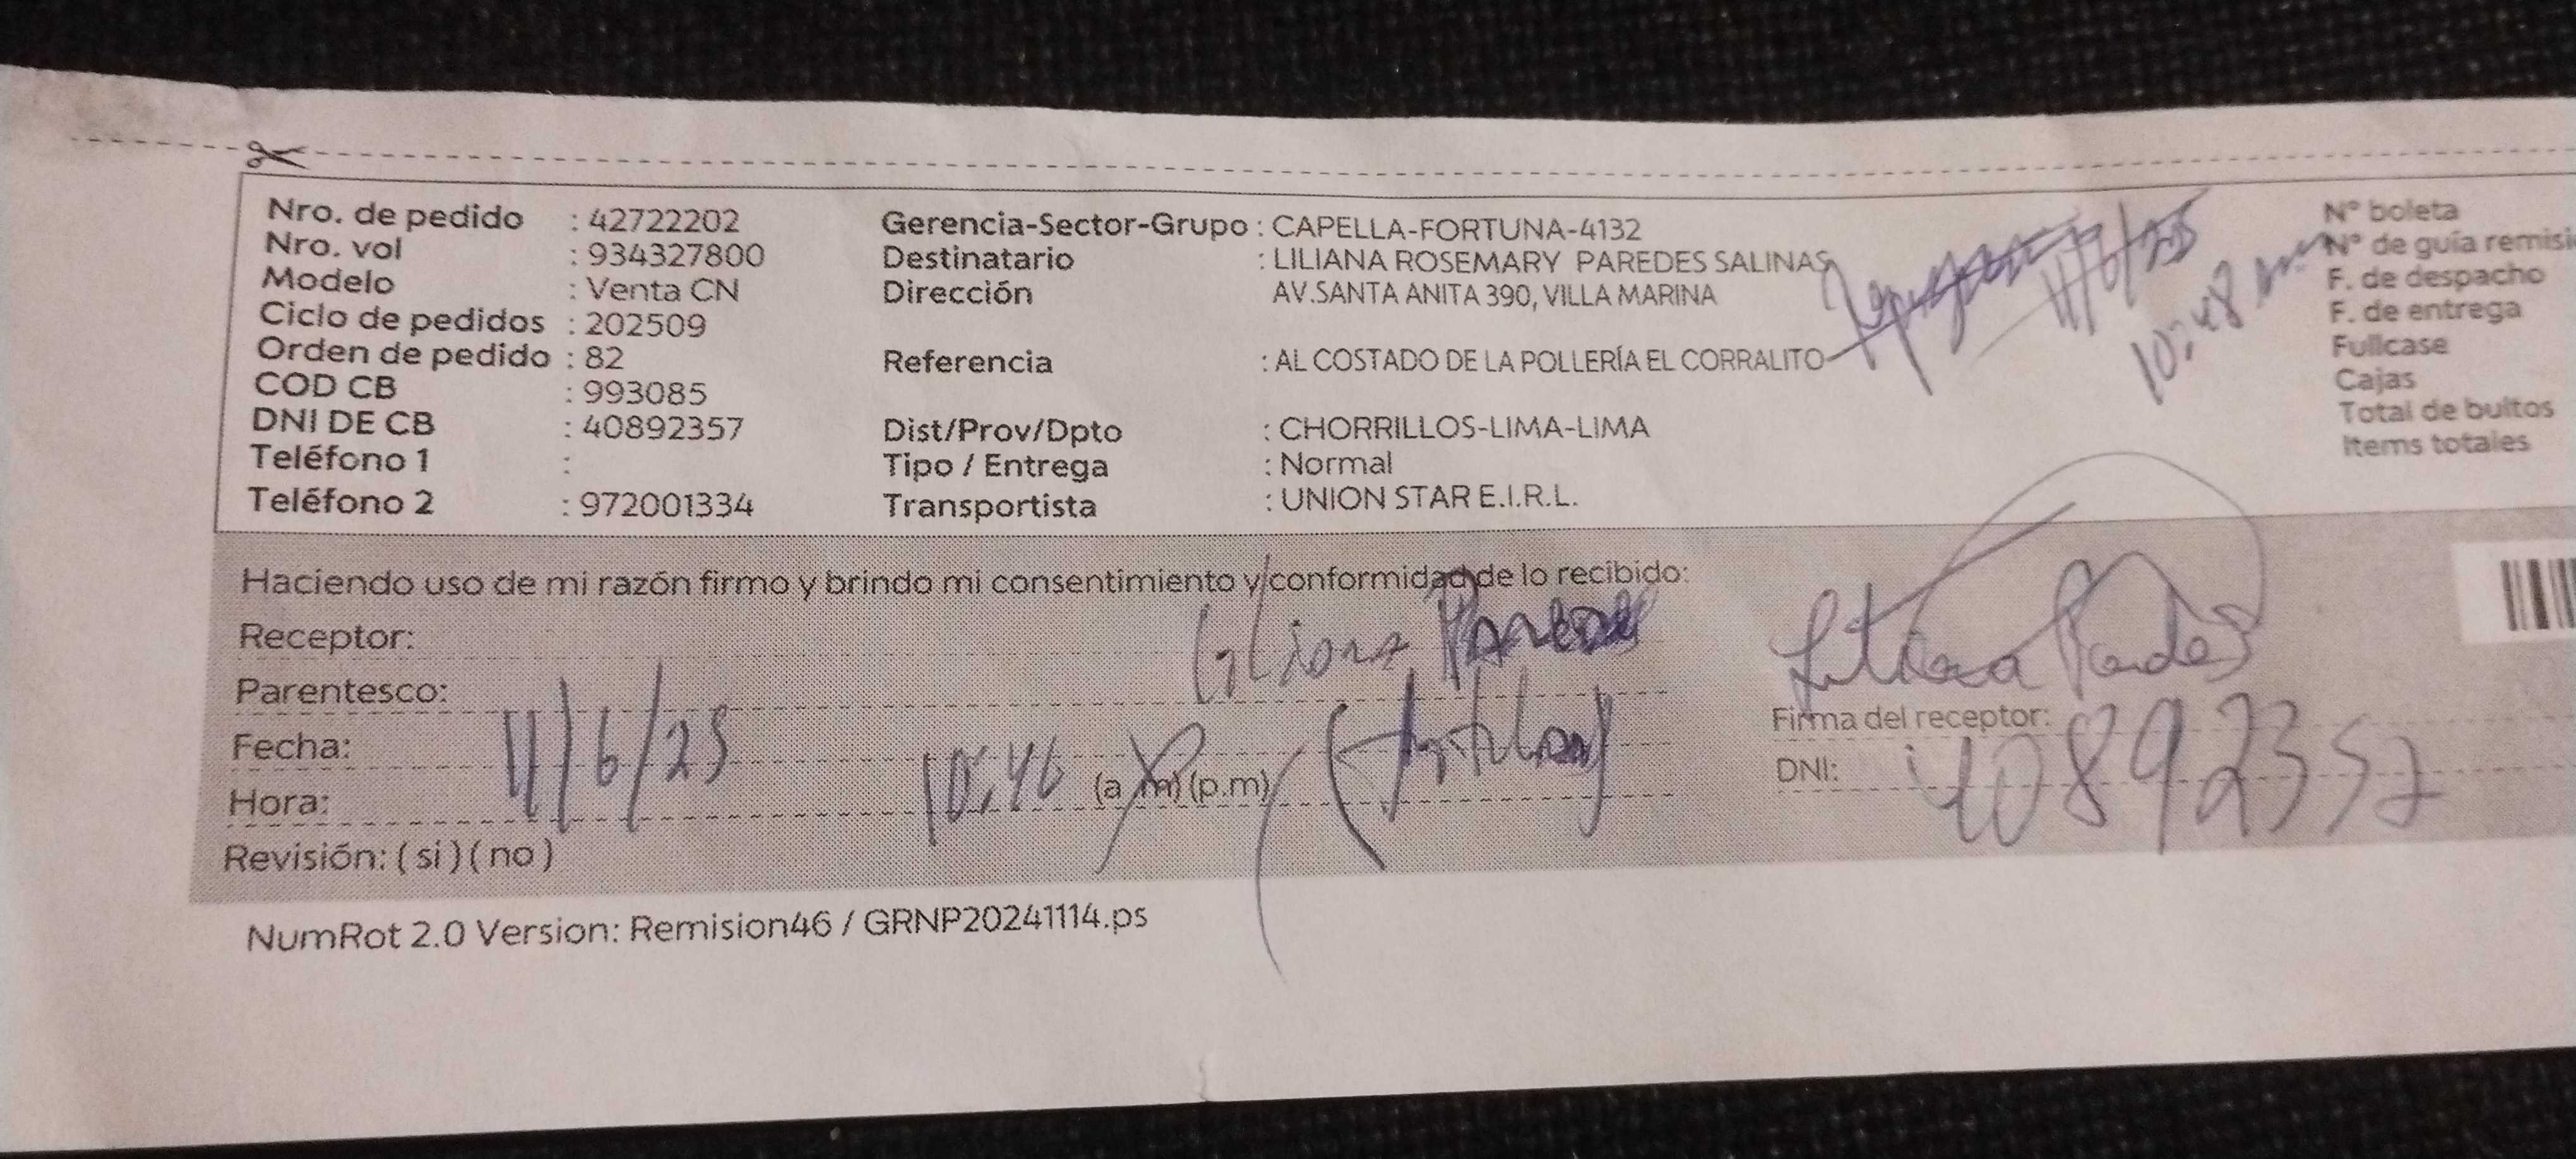 Nro. de pedido : 42722202
Nro. vol : 934327800
Modelo : Venta CN
Ciclo de pedidos : 202509
Orden de pedido : 82
COD CB : 993085
DNI DE CB : 40892357
Teléfono 1 :
Teléfono 2 : 972001334
Gerencia-Sector-Grupo : CAPELLA-FORTUNA-4132
Destinatario : LILIANA ROSEMARY PAREDES SALINAS
Dirección AV.SANTA ANITA 390, VILLA MARINA
Referencia : AL COSTADO DE LA POLLERÍA EL CORRALITO
Dist/Prov/Dpto : CHORRILLOS-LIMA-LIMA
Tipo / Entrega : Normal
Transportista : UNION STAR E.I.R.L.
11/6/25
10:48
N° boleta
N° de guía remisi
F. de despacho
F. de entrega
Fullcase
Cajas
Total de bultos
Items totales
Haciendo uso de mi razón firmo y brindo mi consentimiento y conformidad de lo recibido:
Receptor: Liliana Paredes
Parentesco: (titular)
Fecha: 11/6/25
Hora: 10:46 (a m) (p.m)
Revisión: ( si ) ( no )
Liliana Paredes
Firma del receptor:
DNI: 40892357
NumRot 2.0 Version: Remision46 / GRNP20241114.ps